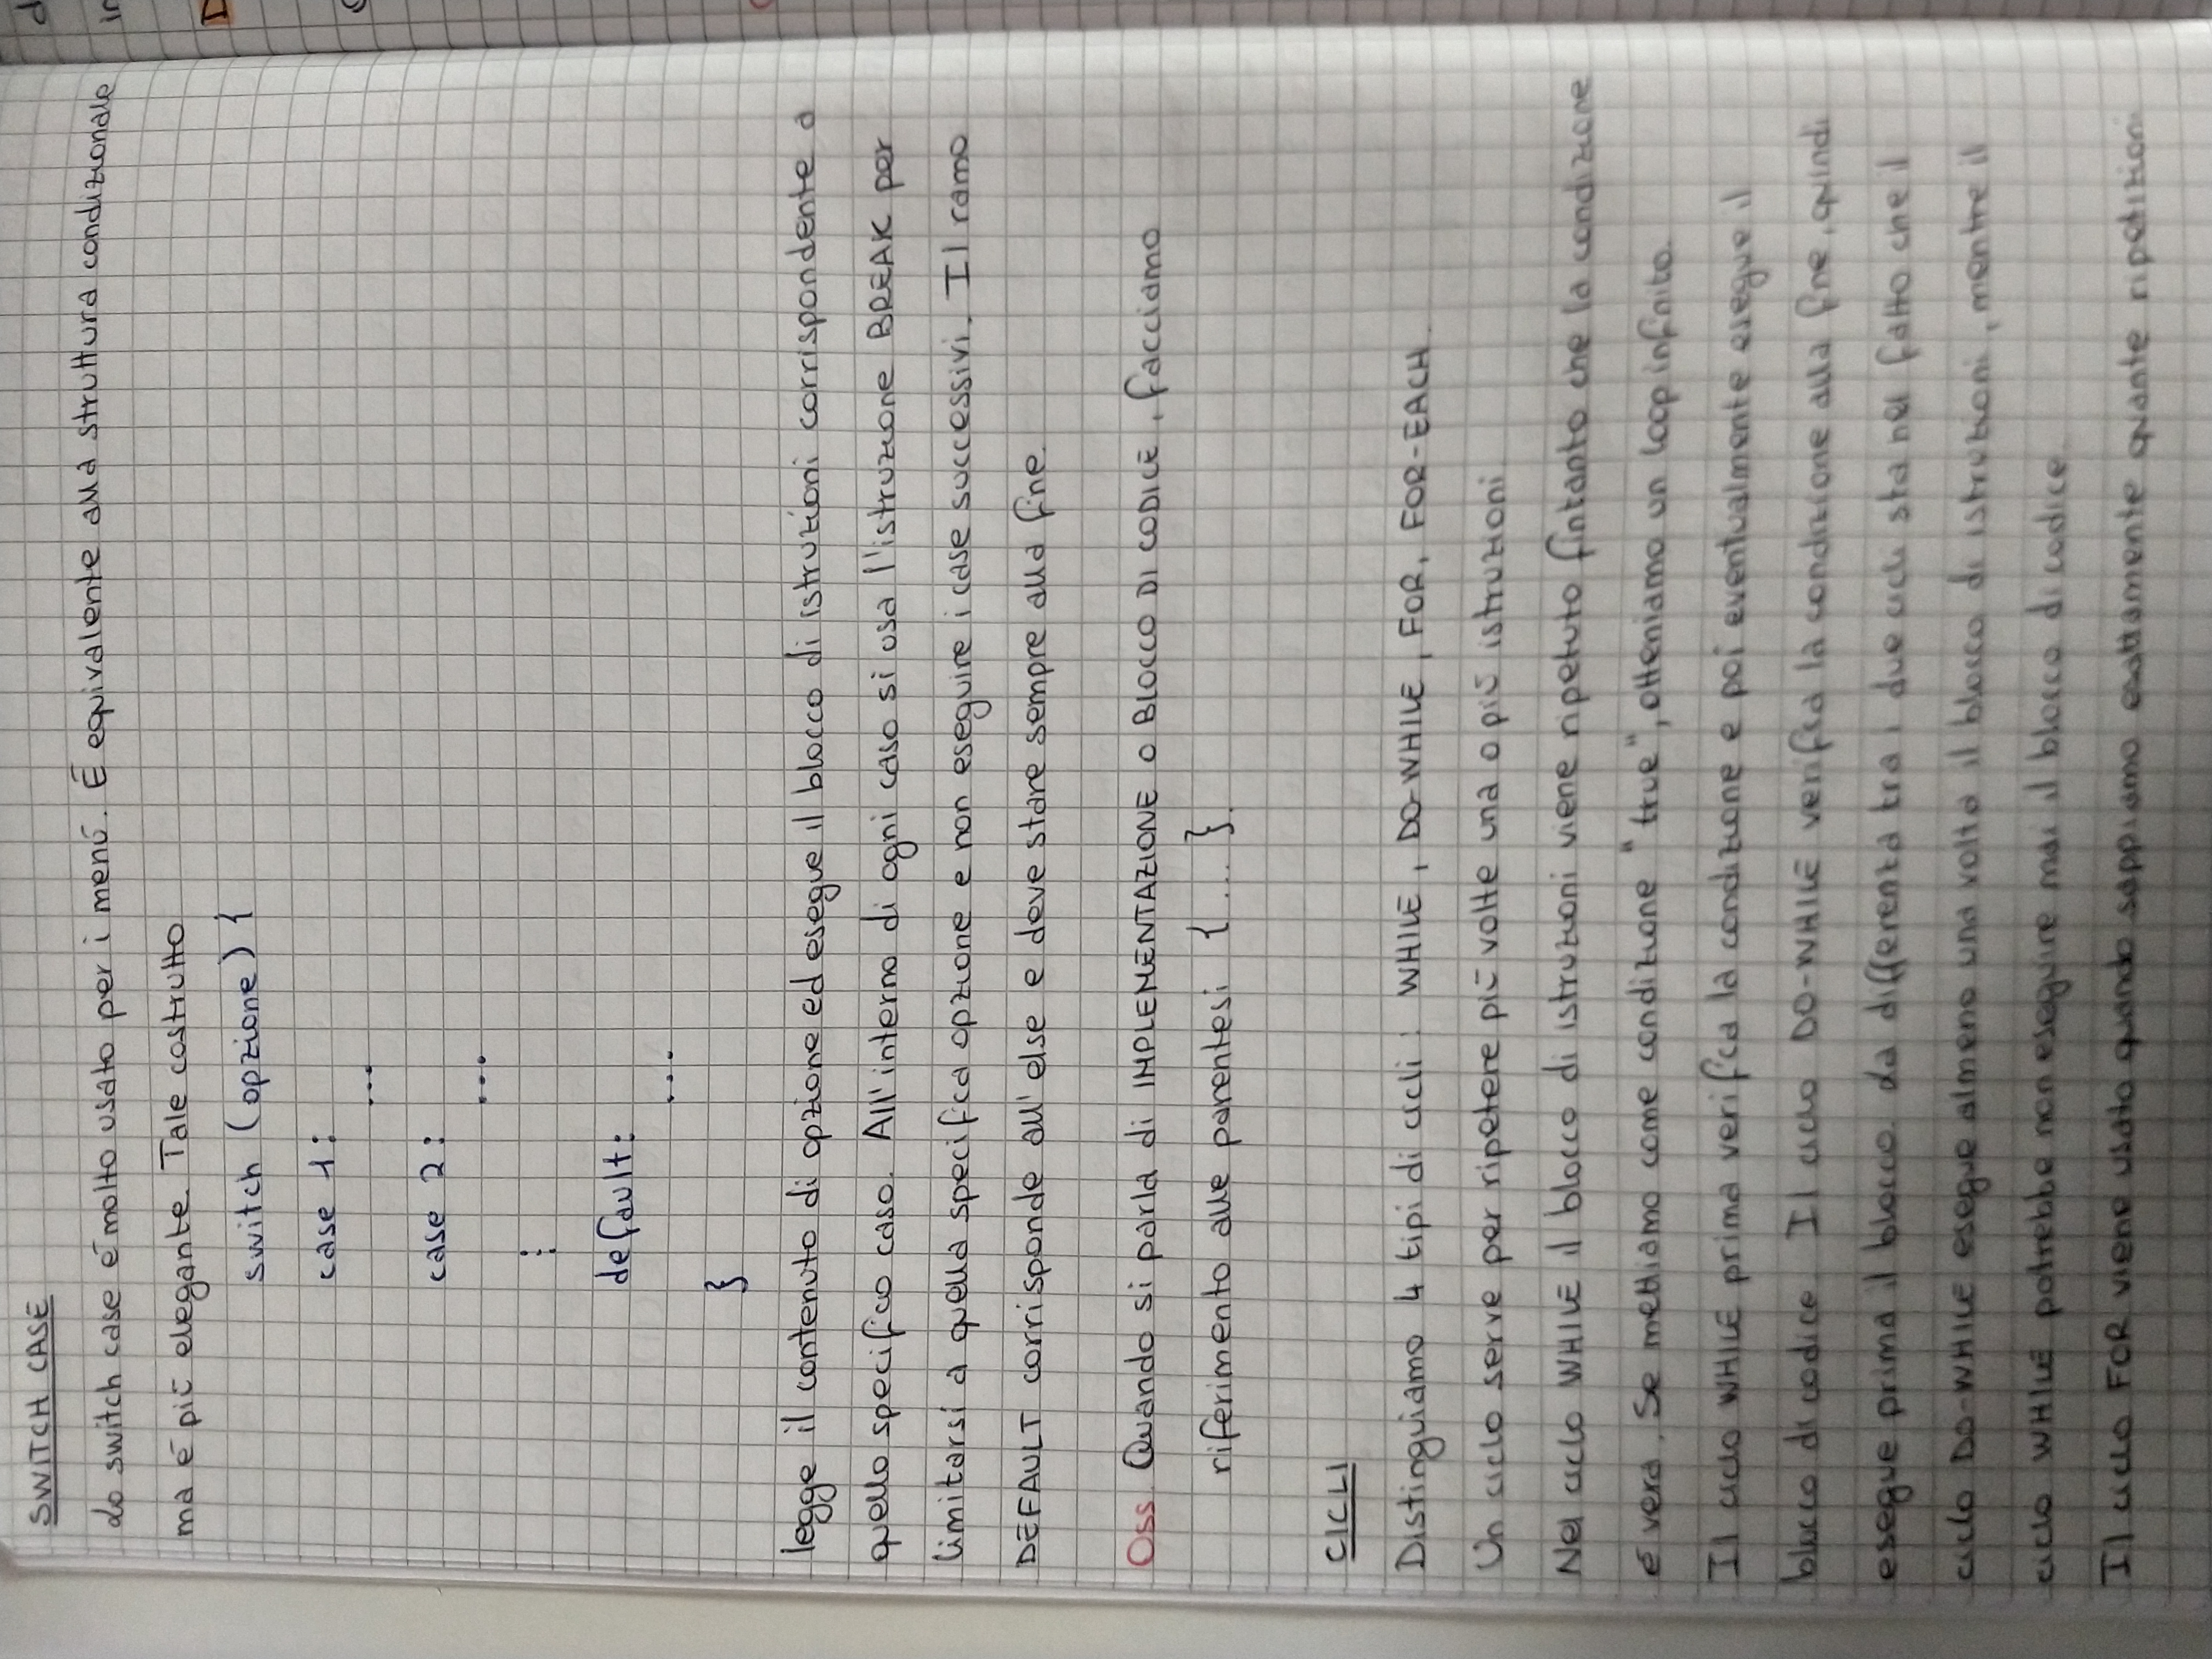 SWITCH CASE
Lo switch case è molto usato per i menù. È equivalente alla struttura condizionale
ma è più elegante. Tale costrutto
switch (opzione) {
case 1:
...
case 2:
...
⋮
default:
...
}
legge il contenuto di opzione ed esegue il blocco di istruzioni corrispondente a
quello specifico caso. All'interno di ogni caso si usa l'istruzione BREAK per
limitarsi a quella specifica opzione e non eseguire i case successivi. Il ramo
DEFAULT corrisponde all'else e deve stare sempre alla fine.
Oss. Quando si parla di IMPLEMENTAZIONE O BLOCCO DI CODICE, facciamo
riferimento alle parentesi { ... }.
CICLI
Distinguiamo 4 tipi di cicli: WHILE, DO-WHILE, FOR, FOR-EACH.
Un ciclo serve per ripetere più volte una o più istruzioni.
Nel ciclo WHILE il blocco di istruzioni viene ripetuto fintanto che la condizione
è vera. Se mettiamo come condizione "true", otteniamo un loop infinito.
Il ciclo WHILE prima verifica la condizione e poi eventualmente esegue il
blocco di codice. Il ciclo DO-WHILE verifica la condizione alla fine, quindi
esegue prima il blocco. La differenza tra i due cicli sta nel fatto che il
ciclo DO-WHILE esegue almeno una volta il blocco di istruzioni, mentre il
ciclo WHILE potrebbe non eseguire mai il blocco di codice.
Il ciclo FOR viene usato quando sappiamo esattamente quante ripetizioni